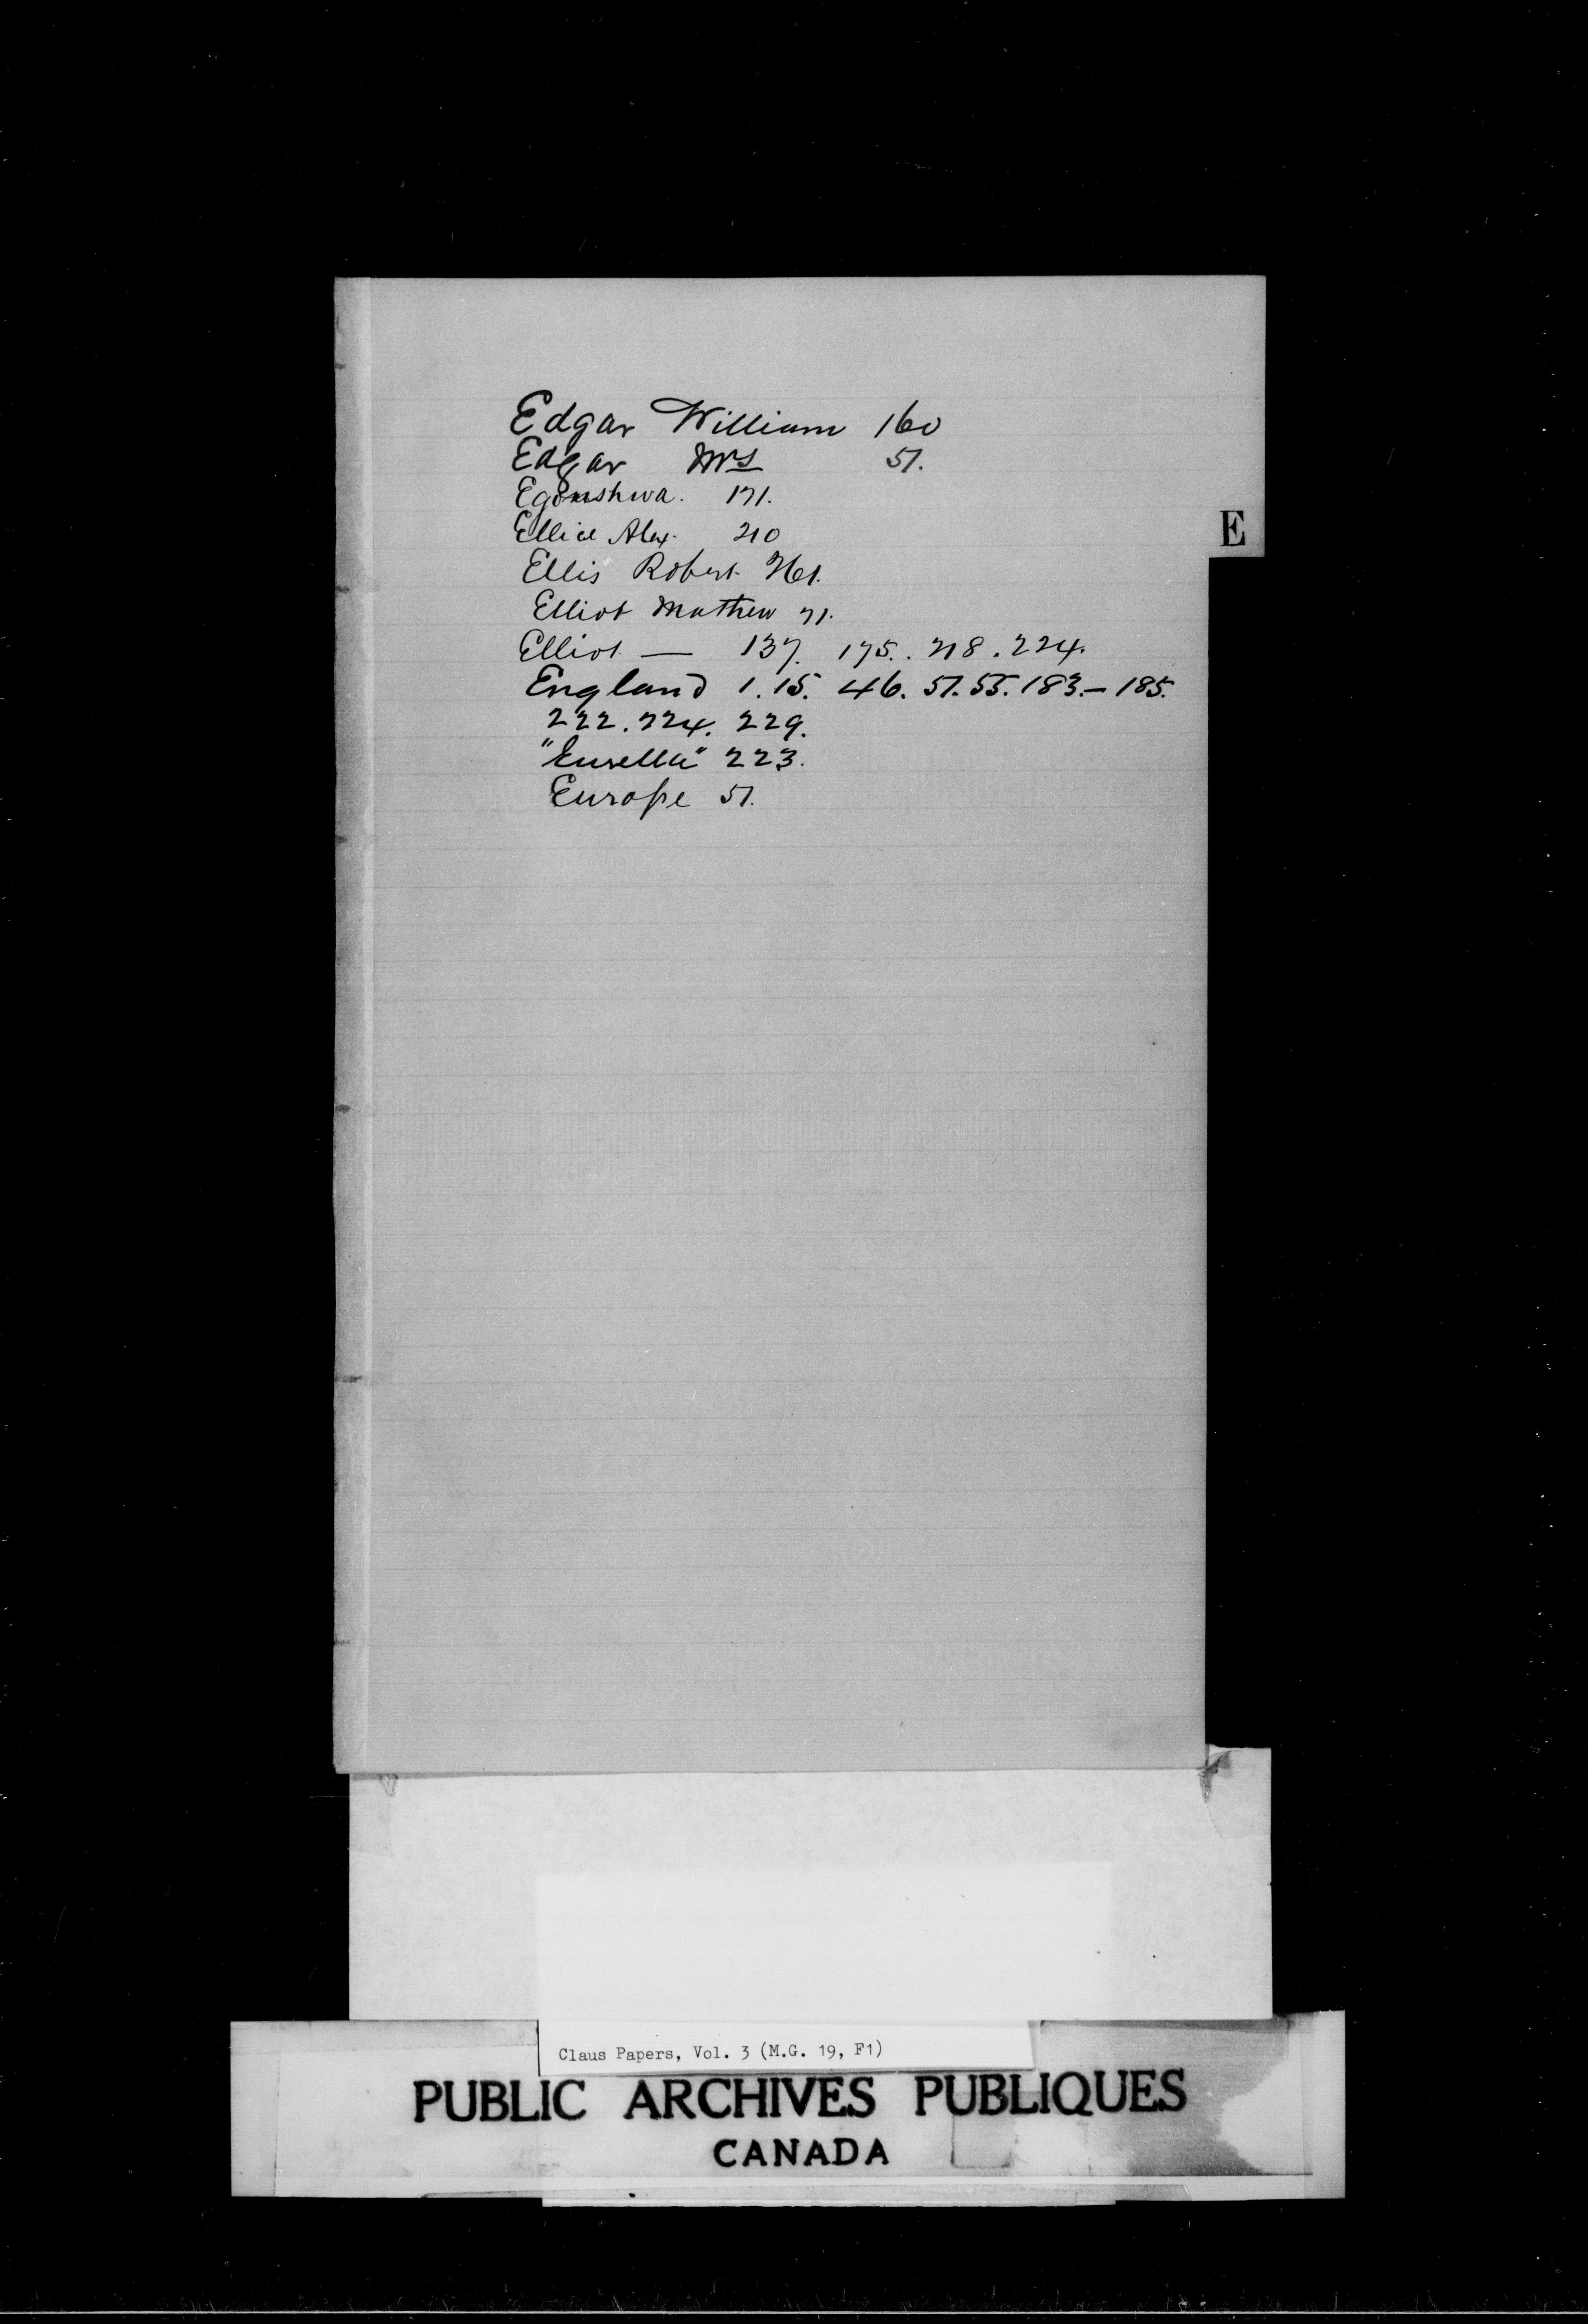 Edgar William 160
Edgar Mrs 51.
Egonshwa. 171.
Ellice Alex. 210
Ellis Robert 261.
Elliot Mathew 71.
Elliot — 137. 175. 218. 224.
England 1. 15. 46. 51. 55. 183.—185.
222. 224. 229.
223.
Europe 51.
E
Claus Papers, Vol. 3 (M.G. 19, F1)
PUBLIC ARCHIVES PUBLIQUES
CANADA